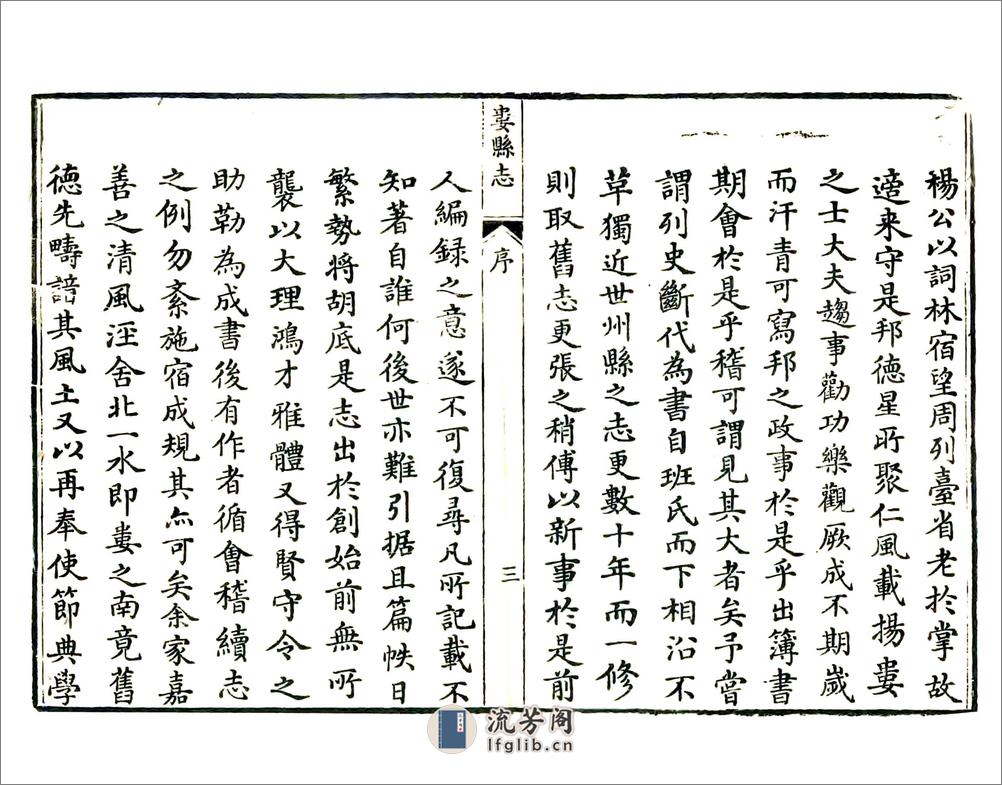 楊公以詞林宿望周列臺省老於掌故
適来守是邦德星所聚仁風載揚婁
之士大夫趨事勸功樂觀厥成不期歲
而汗青可寫邦之政事於是乎出簿書
期會於是乎稽可謂見其大者矣予嘗
謂列史斷代為書自班氏而下相沿不
草獨近世州縣之志更數十年而一修
則取舊志更張之稍傅以新事於是前
婁縣志
序
三
人編録之意遂不可復尋凡所記載不
知著自誰何後世亦難引据且篇帙日
繁勢將胡底是志出於創始前無所
襲以大理鴻才雅體又得賢守令之
助勒為成書後有作者循會稽續志
之例勿紊施宿成規其亦可矣余家嘉
善之清風涇舍北一水即婁之南竟舊
德先疇諳其風土又以再奉使節典學
流芳阁
lfglib.cn